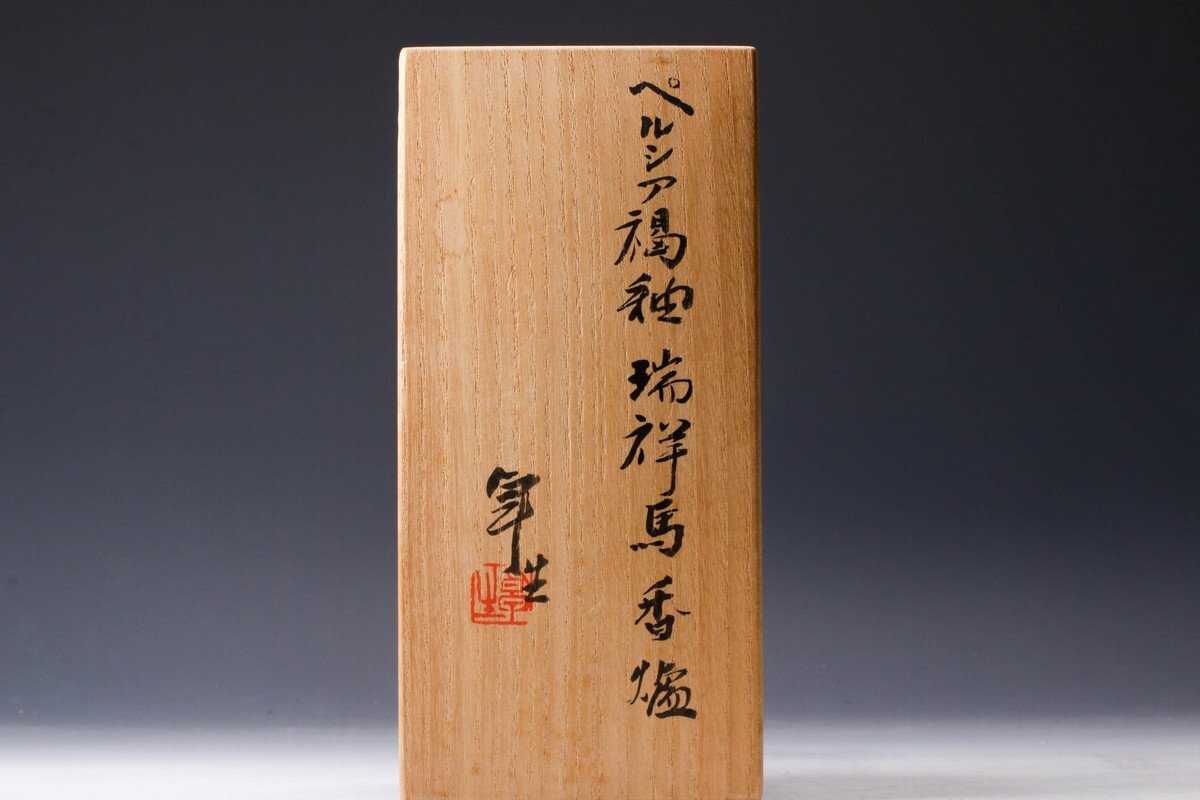 ペルシア褐釉瑞祥馬香爐